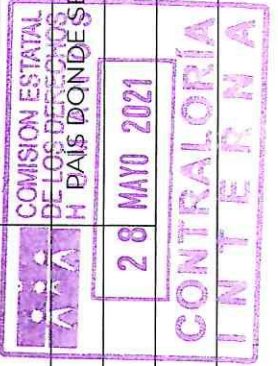 COMISION ESTATAL
DE LOS DERECHOS
H
PAÍS DONDE SE
28 MAYO 2021
CONTRALORÍA
INTERNA